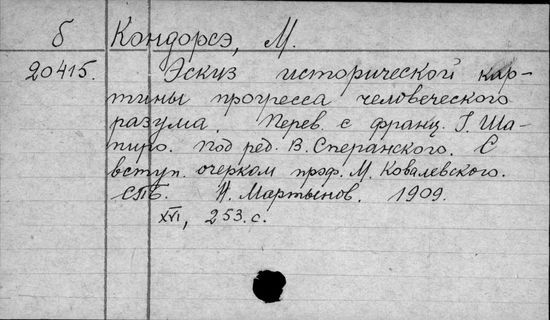 б Кондорсэ, М.
20415. Эскиз исторической кар-
тины прогресса человеческого
разума. Перев. с франц. Г. Ша-
пиро. Под ред. В. Сперанского. С
вступ. очерком проф. М. Ковалевского.
СПБ. Н. Мартынов. 1909.
XVI, 253. с.